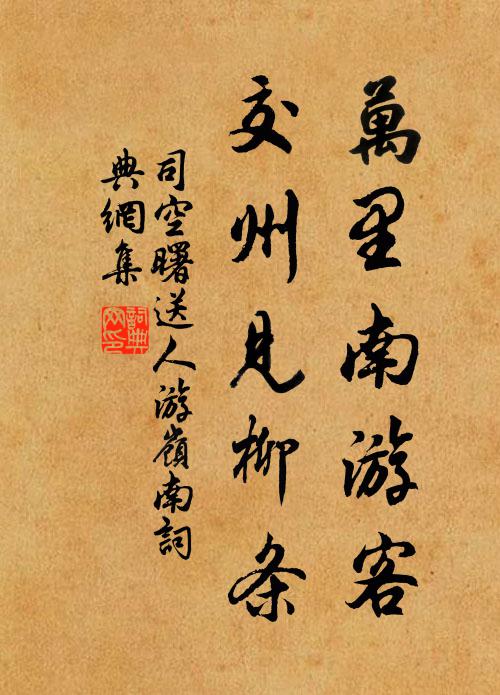 萬里南游客
交州見柳条
司空曙送人游嶺南詞
典網集
詞典網印